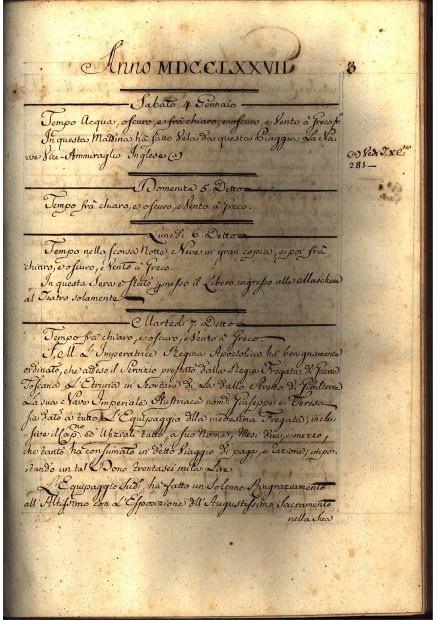 Anno MDCCLXXVII. 3
Sabato 4 Gennaio
Tempo Acqua, oscuro, e frà chiaro, e oscuro, e Vento à Greco
In questa Mattina hà fatto Vela da questa Piaggia La Na-
ve Vice-Ammiraglio Inglese (a)
(a) Ved.
281
Domenica 5 Detto
Tempo frà chiaro, e oscuro, e Vento à Greco.
Lunedì 6. Detto
Tempo nella scorsa Notte Neve in gran copia, e poi frà
chiaro, e oscuro, e Vento à Greco.
In questa Sera è stato messo il Libero ingresso alle Maschere
al Teatro solamente
Martedì 7. Detto
Tempo frà chiaro, e oscuro, e Vento à Greco
S. M. L'Imperatrice Regina Apostolica hà benignamente
ordinato, che ad eso il Servizio prestato dalla Regia Fregata di Guerra
Toscano L'Etruria in Scortare di La dallo Stretto di Gibilterra
La sua Nave Imperiale Austriaca nom. Giuseppe e Teresa
sia dato a tutto L'Equipaggio della medesima Fregata, inclu-
sive il Cap.no ed Ufizali tutto, a suo Nome, Mesi due, e mezzo,
che tanto hà consumato in detto Viaggio di paga, e razione, impor-
tando un tal Dono trentasei mila Lire.
L'Equipaggio Sud.o hà fatto un Solenne Ringraziamento
all'Altissimo con L'Esposizione dell'Augustissimo Sacramento
nella Sua